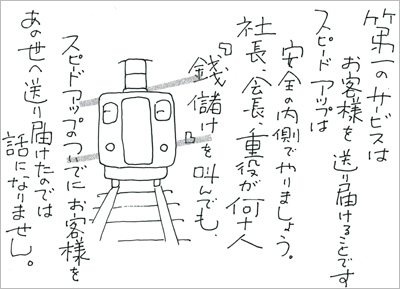 第一のサービスは
お客様を送り届けることです
スピードアップは
安全の内側でやりましょう。
社長、会長、重役が何十人
『銭儲け』を叫んでも、
スピードアップのついでにお客様を
あの世へ送り届けたのでは
話になりません。